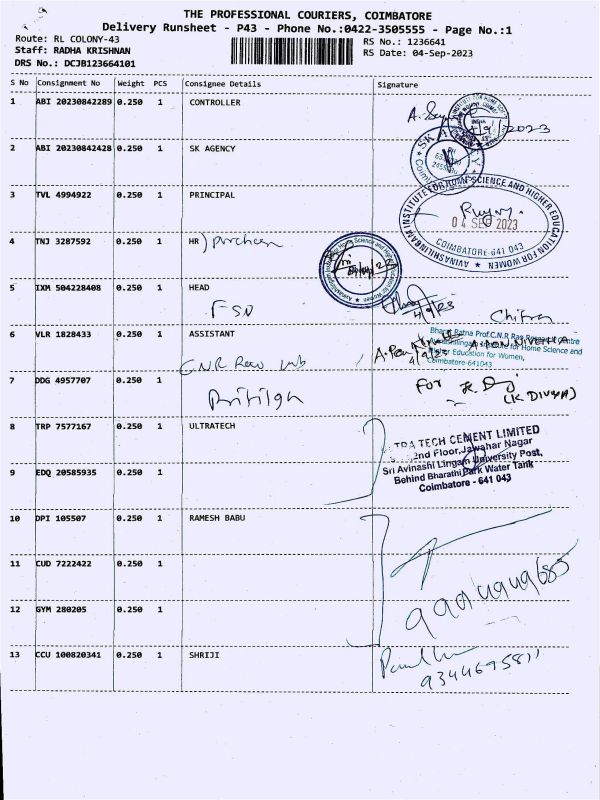 THE PROFESSIONAL COURIERS, COIMBATORE
Delivery Runsheet - P43 - Phone No.:0422-3505555 - Page No.:1
Route: RL COLONY-43
RS No.: 1236641
Staff: RADHA KRISHNAN
RS Date: 04-Sep-2023
DRS No.: DCJB123664101
S No Consignment No Weight PCS Consignee Details Signature
1 ABI 20230842289 0.250 1 CONTROLLER
4/9/2023
2 ABI 20230842428 0.250 1 SK AGENCY
SK AGENCY
3 TVL 4994922 0.250 1 PRINCIPAL
AVINASHILINGAM INSTITUTE FOR HOME SCIENCE AND HIGHER EDUCATION FOR WOMEN
04 SEP 2023
COIMBATORE-641 043
4 TNJ 3287592 0.250 1 HR
5 IXM 504228408 0.250 1 HEAD
4/9/23
Chitra
6 VLR 1828433 0.250 1 ASSISTANT
Bharat Ratna Prof.C.N.R Rao Research Centre
Institute for Home Science and
Higher Education for Women,
Coimbatore-641043
4/9/23
C.N.R Rao
7 DDG 4957707 0.250 1
For
(K DIVYA)
8 TRP 7577167 0.250 1 ULTRATECH
ULTRA TECH CEMENT LIMITED
2nd Floor, Jawahar Nagar
Sri Avinashi Lingam University Post,
Behind Bharathi Park Water Tank
Coimbatore - 641 043
9 EDQ 20585935 0.250 1
10 DPI 105507 0.250 1 RAMESH BABU
11 CUD 7222422 0.250 1
12 GYM 280205 0.250 1
13 CCU 100820341 0.250 1 SHRIJI